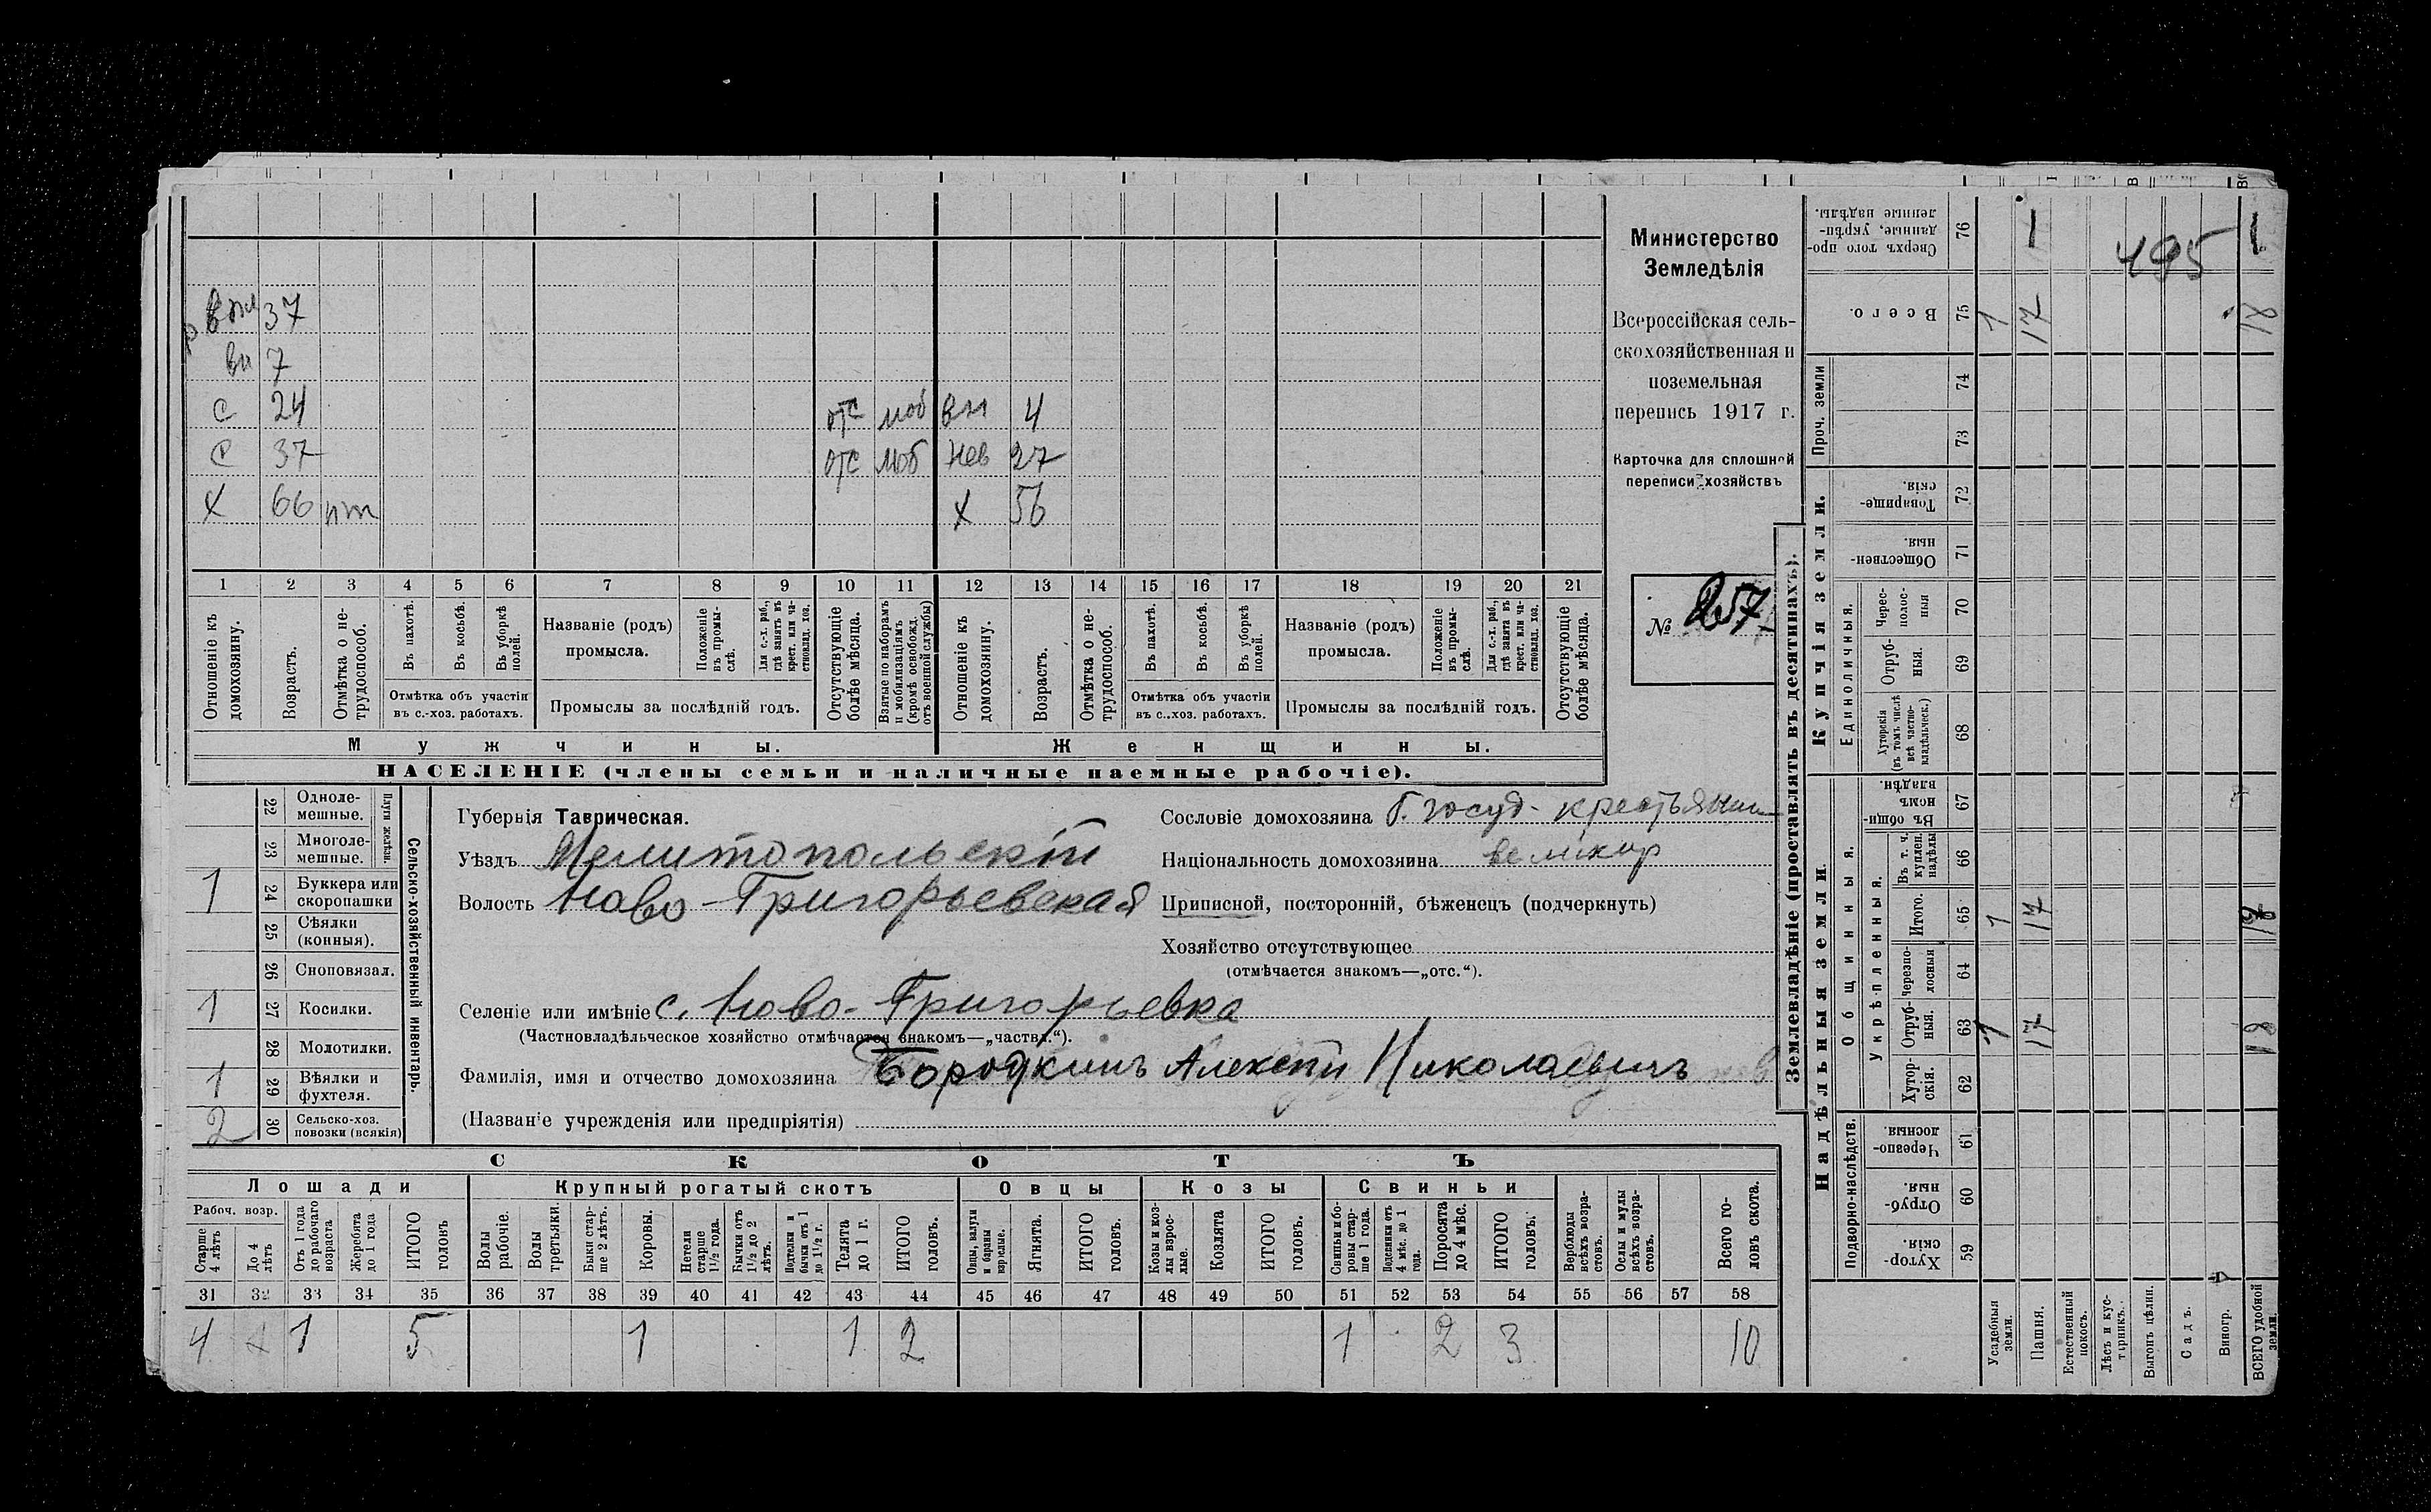 Министерство
Земледѣлія
Всероссійская сель-
скохозяйственная и
поземельная
перепись 1917 г.
Карточка для сплошной
переписи хозяйствъ
№ 257
вн 37
вн 7
с 24 отс моб вн 4
с 37 отс моб нев 27
х 66 х 56
1 2 3 4 5 6 7 8 9 10 11 12 13 14 15 16 17 18 19 20 21
Отношеніе къ домохозяину.
Возрастъ.
Отмѣтка о не-трудоспособ.
Въ пахотѣ.
Въ косьбѣ.
Въ уборкѣ полей.
Отмѣтка объ участіи
въ с.-хоз. работахъ.
Названіе (родъ)
промысла.
Положеніе въ промы-слѣ.
Для с.-х. раб., гдѣ занятъ въ крест. или ча-стновлад. хоз.
Промыслы за послѣдній годъ.
Отсутствующіе болѣе мѣсяца.
Взятые по наборамъ и мобилизаціямъ (кромѣ освобожд. отъ военной службы)
Отношеніе къ домохозяину.
Возрастъ.
Отмѣтка о не-трудоспособ.
Въ пахотѣ.
Въ косьбѣ.
Въ уборкѣ полей.
Отмѣтка объ участіи
въ с.-хоз. работахъ.
Названіе (родъ)
промысла.
Положеніе въ промы-слѣ.
Для с.-х. раб., гдѣ занята въ крест. или ча-стновлад. хоз.
Промыслы за послѣдній годъ.
Отсутствующіе болѣе мѣсяца.
Мужчины. Женщины.
НАСЕЛЕНІЕ (члены семьи и наличные наемные рабочіе).
Губернія Таврическая.
Уѣздъ Мелитопольскій
Волость Ново-Григорьевская
Сословіе домохозяина б. госуд. крестьянин
Національность домохозяина великор
Приписной, посторонній, бѣженецъ (подчеркнуть)
Хозяйство отсутствующее
(отмѣчается знакомъ—„отс.“).
Селеніе или имѣніе с. Ново-Григорьевка
(Частновладѣльческое хозяйство отмѣчается знакомъ—„частв.“).
Фамилія, имя и отчество домохозяина Бородкинъ Алексѣй Николаевичъ
(Названіе учрежденія или предпріятія)
Сельско-хозяйственный инвентарь.
Плуги желѣзн.
22 Одноле-мешные.
23 Многоле-мешные.
1 24 Буккера или скоропашки
25 Сѣялки (конныя).
26 Сноповязал.
1 27 Косилки.
28 Молотилки.
1 29 Вѣялки и фухтеля.
2 30 Сельско-хоз. повозки (всякія)
СКОТЪ
Лошади Крупный рогатый скотъ Овцы Козы Свиньи
Рабоч. возр.
Старше 4 лѣтъ
До 4 лѣтъ
Отъ 1 года до рабочаго возраста
Жеребята до 1 года
ИТОГО головъ
Волы рабочіе.
Волы третьяки.
Быки стар-ше 2 лѣтъ.
Коровы.
Нетели старше 1½ года.
Бычки отъ 1½ до 2 лѣтъ.
Подтелки и бычки отъ 1 до 1½ г.
Телята до 1 г.
ИТОГО головъ.
Овцы, валухи и бараны взрослые.
Ягнята.
ИТОГО головъ.
Козы и коз-лы взрос-лые.
Козлята
ИТОГО головъ.
Свиньи и бо-ровы стар-ше 1 года.
Подсвинки отъ 4 мѣс. до 1 года.
Поросята до 4 мѣс.
ИТОГО головъ.
Верблюды всѣхъ возра-стовъ.
Ослы и мулы всѣхъ возра-стовъ.
Всего го-ловъ скота.
31 32 33 34 35 36 37 38 39 40 41 42 43 44 45 46 47 48 49 50 51 52 53 54 55 56 57 58
4 1 5 1 1 2 1 2 3 10
Землевладѣніе (проставлять въ десятинахъ).
Купчія земли.
Надѣльныя земли.
Сверхъ того про-данные, укрѣп-ленные надѣлы. 76 1 1
495
Всего. 75 1 17 18
Проч. земли 74
73
Товарище-скія. 72
Обществен-ныя. 71
Единоличныя.
Черес-полос-ныя 70
Отруб-ныя. 69
Хуторскія (въ томъ числѣ всѣ частно-владѣльческ.) 68
Общинныя.
Въ общин-номъ владѣн. 67
Укрѣпленныя.
Въ т. ч. куплен. надѣлы 66
Итого. 65 1 17 18
Черезпо-лосныя 64
Отруб-ныя. 63 1 17 18
Хутор-скія. 62
Подворно-наслѣдств.
Черезпо-лосныя. 61
Отруб-ныя. 60
Хутор-скія. 59
Усадебныя земли.
Пашня.
Естественный покосъ.
Лѣсъ и кус-тарникъ.
Выгонъ цѣлин.
Садъ.
Виногр.
ВСЕГО удобной земли.